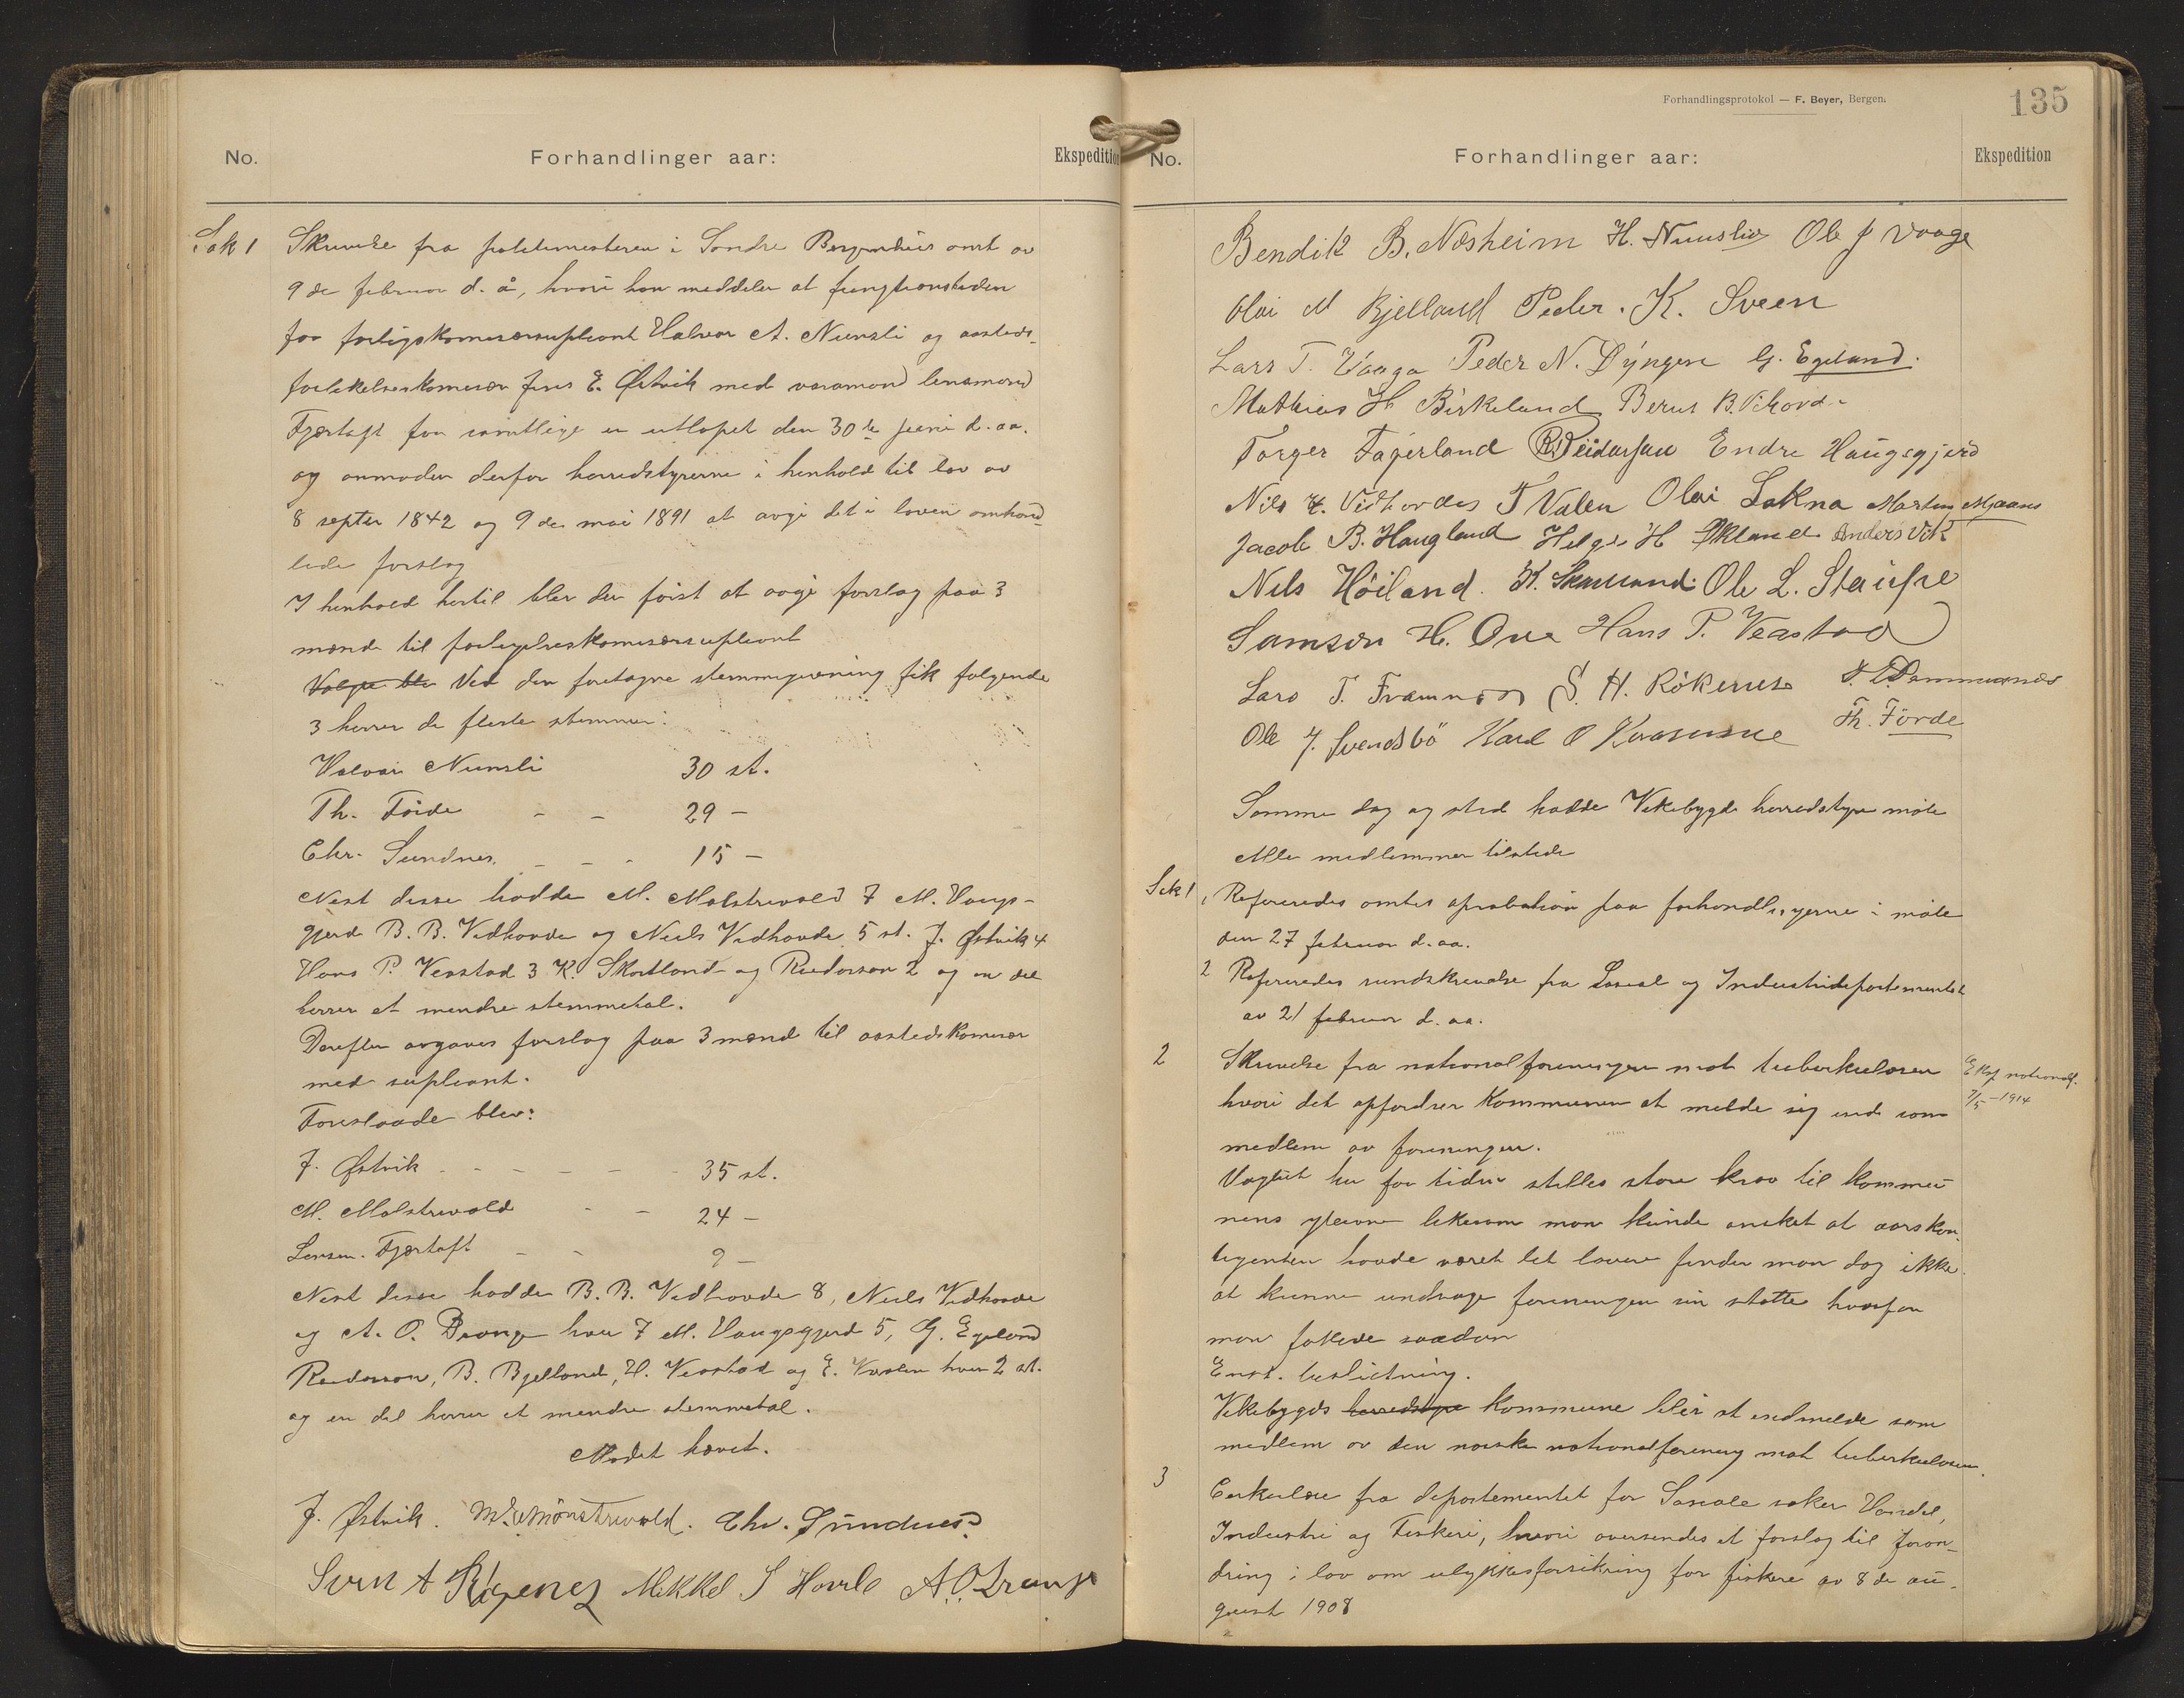 No.
Forhandlinger aar:
Ekspedition
Sak 1
Skrivelse fra politimesteren i Søndre Bergenhus amt av
9 de februar d. å, hvori han meddeler at fungtionstiden
for forligskomisærsupleant Halvor A. Nunsli og aasteds-
forlikelseskomisær Jens E. Østvik med varamand lensmand
Fjærtoft for samtlige er utløpet den 30 te juni d. aa.
og anmoder derfor herredstyrerne i henhold til lov av
8 septbr 1842 og 9 de mai 1891 at avgi det i loven omhand
lede forslag
I henhold hertil blev der først at avgi forslag paa 3
mænd til forligelseskomisærsupleant
Valgte blev Ved den foretagne stemmegivning fik følgende
3 herrer de fleste stemmer:
Halvor Nunsli 30 st.
Th. Førde - - 29 -
Chr. Sundnes. - - - 15 -
Næst disse hadde M. Mølstrevold 7 M. Haugs-
gjerd B. B. Vidhovde og Niels Vidhovde 5 st. J. Østvik 4
Hans P. Veastad 3 K. Skartland og Reidarson 2 og en del
herrer et mindre stemmetal.
Derefter avgaves forslag paa 3 mænd til aastedskomisær
med supleant.
Foreslaade blev:
J. Østvik - - - - - - 35 st.
M. Mølstrevold - - 24 -
Lensm. Fjærtoft - - 9 -
Næst disse hadde B. B. Vidhovde 8, Niels Vidhovde
og A. O. Drange hver 7 M. Haugsgjerd 5, G. Egeland
Reidarson, B. Bjelland, H. Veastad og E. hver 2 st.
og en del herrer et mindre stemmetal.
Mødet hævet.
J. Østvik. M. Mönstrevold. Chr. Sundnes
Sven A Røgenes Mikkel S Hovle A. O. Drange
Forhandlingsprotokol — F. Beyer, Bergen.
135
No.
Forhandlinger aar:
Ekspedition
Bendik B. Næsheim H. Nunslid Ole J Vaage
Olai M Bjelland Peder. K. Sveen
Lars T. Vaaga Peder N. Dyngen G. Egeland.
Mathias H Birkeland Bernt B. Vihovde
Torger Fagerland B Reidarsen Endre Haugsgjerd
Nils E. Vidhovdes T Valen Olai Lokna Marten Mjaanes
Jacob B. Haugland Helge H Økland Anders Vik
Nils Höiland. K. Skartland. Ole L. Stausre
Samson H. Ove Hans P. Veastad
Lars T. Framnes S. H. Rökenes
Th. Förde
Ole J. Svendsbö Karl O
Samme dag og sted hadde Vikebygd herredstyre møte
Alle medlemmer tilstede
Sak 1
Refereredes amtets aprobation paa forhandlingerne i møte
den 27 februar d. aa.
2 Refereredes rundskrivelse fra Social og Industridepartementet
av 21 februar d. aa.
2
Skrivelse fra nationalforeningen mot tuberkulosen
Eksp nationalf.
7/5-1914
hvori det opfordrer kommunen at melde sig ind som
medlem av foreningen.
Vagtet her for tiden stilles store krav til kommu-
nens yteevne likesom man kunde ønsket at aarskon-
tigenten havde været let lavere finder man dog ikke
at kunne undrage foreningen sin støtte hvorfor
man fattede saadan
Enst. beslutning.
Vikebygds herredstyre kommune blir at indmelde som
medlem av den norske nationalforening mot tuberkulosen.
3
Cirkulære fra departementet for Sociale saker Handel,
Industri og Fiskeri, hvori oversendes et forslag til foran-
dring i lov om ulykkesforsikring for fiskere av 8 de au-
gust 1908